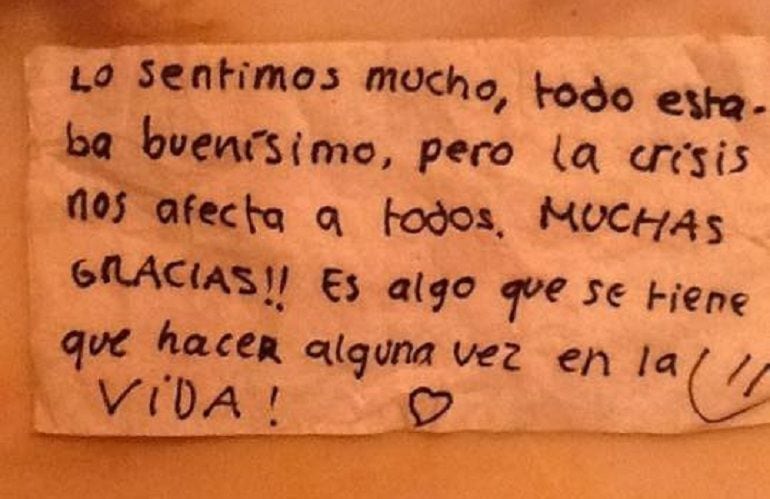 Lo sentimos mucho, todo esta-
ba buenísimo, pero la crisis
nos afecta a todos. MUCHAS
GRACIAS!! Es algo que se tiene
que hacer alguna vez en la
VIDA! ♡